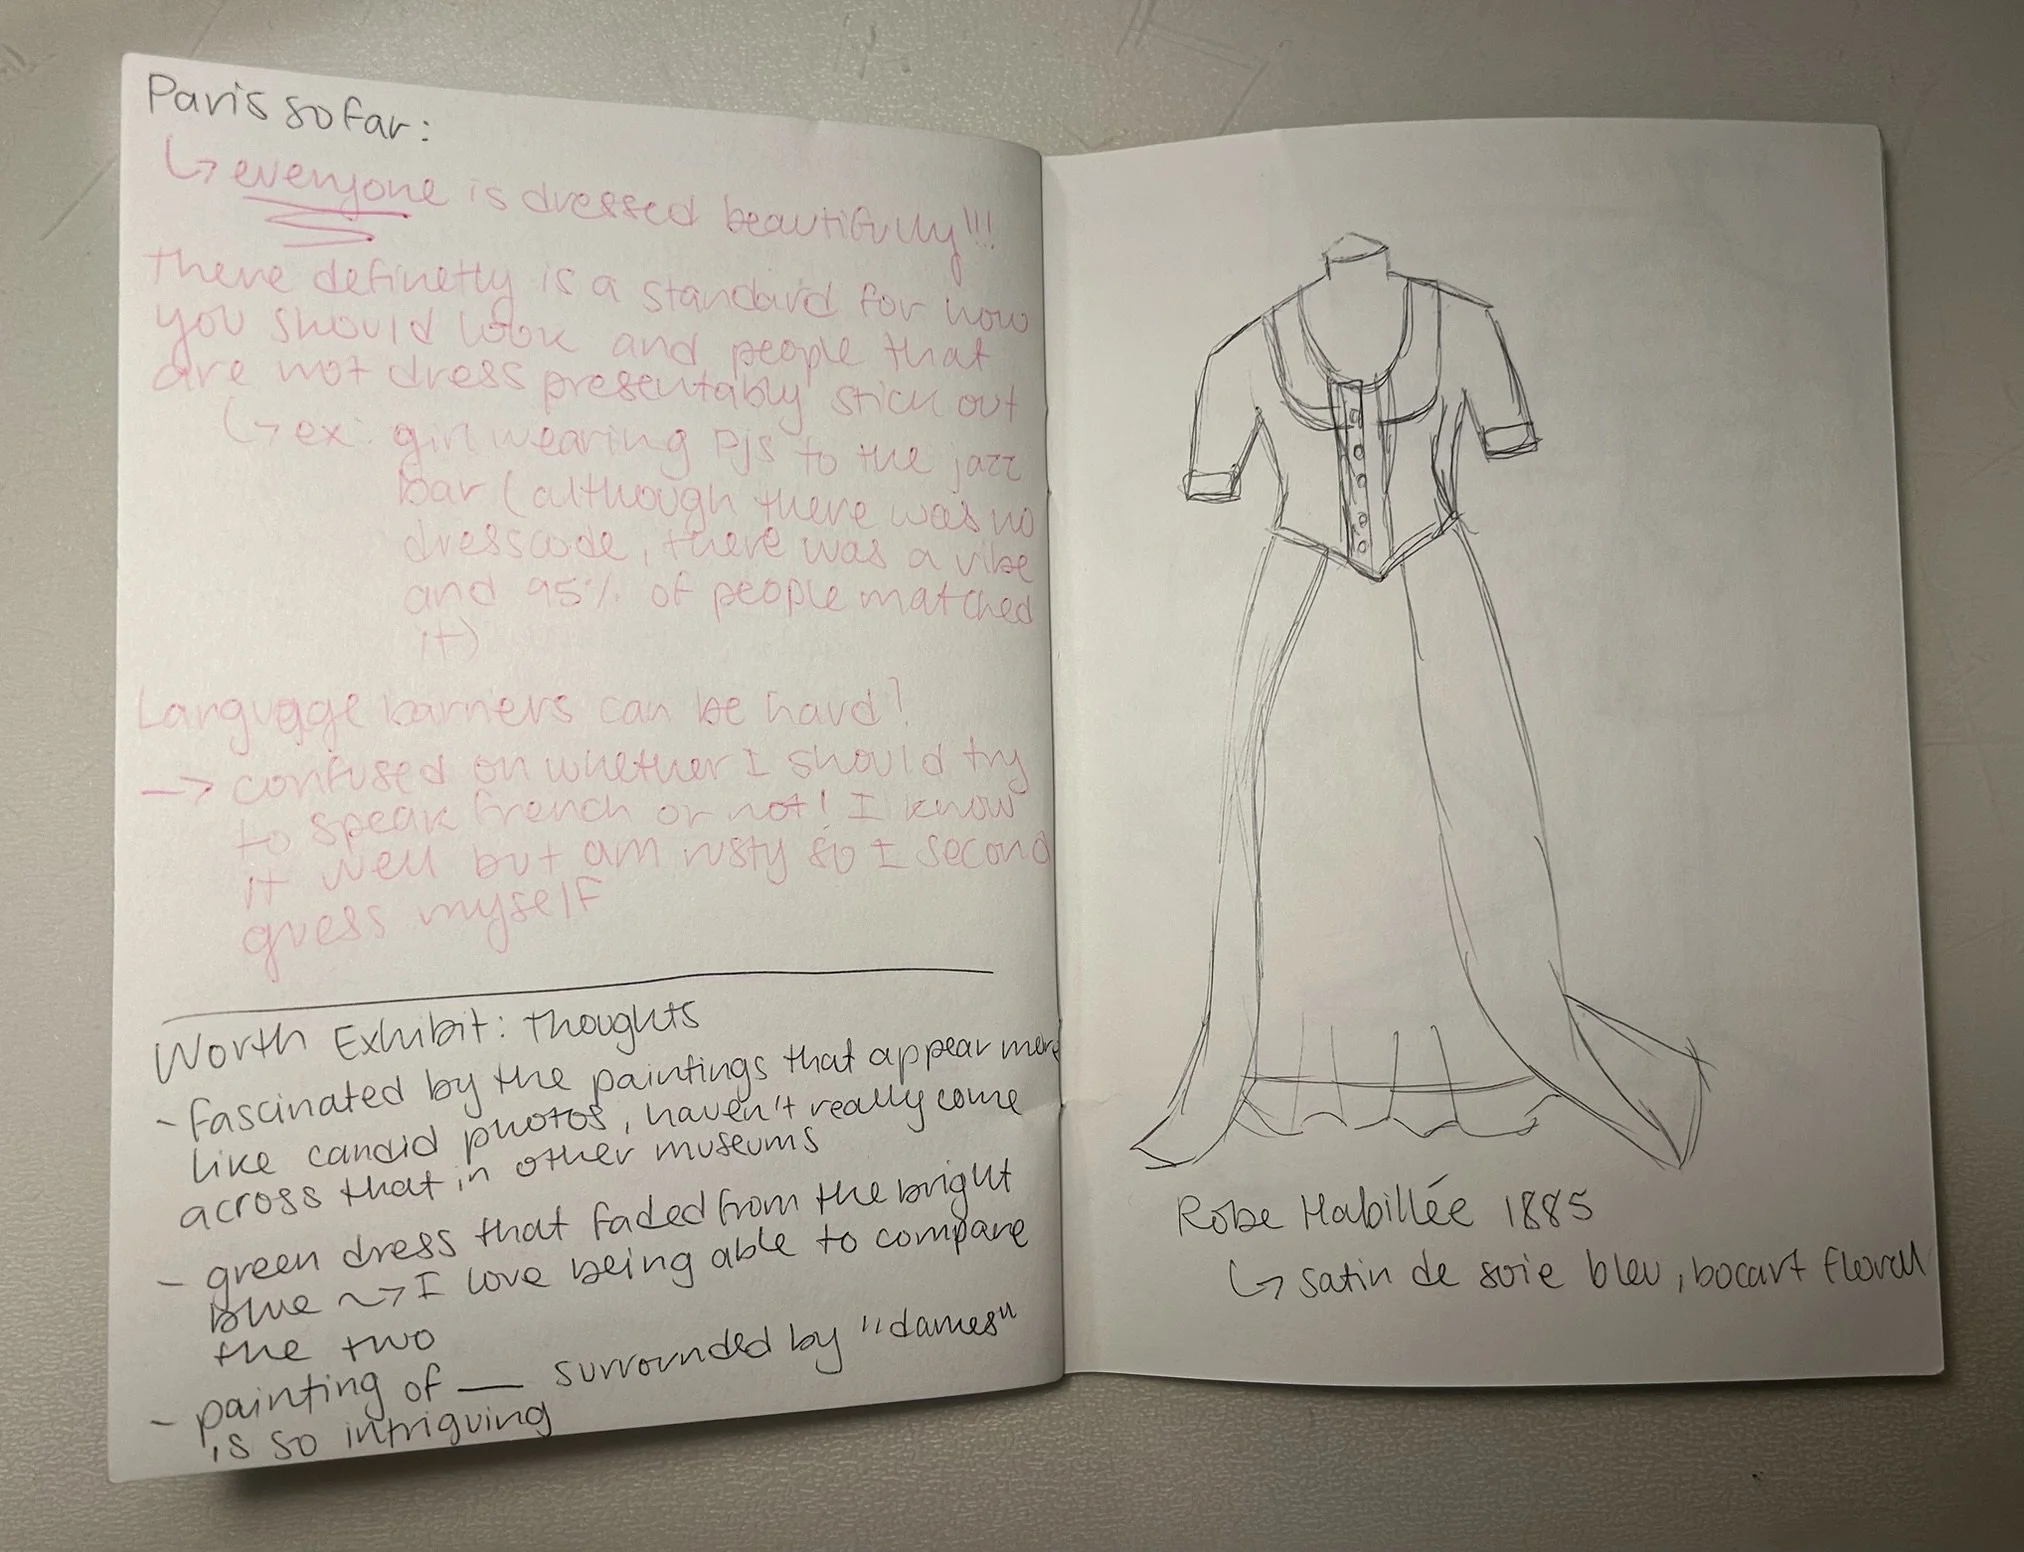 Paris so far:
↳ everyone is dressed beautifully!!!
There definetly is a standard for how
you should look and people that
are not dress presentably stick out
↳ ex: girl wearing PJs to the jazz
bar (although there was no
dresscode, there was a vibe
and 95% of people matched
it)
Language barriers can be hard!
→ confused on whether I should try
to speak french or not! I know
it well but am rusty so I second
guess myself
Worth Exhibit: Thoughts
- fascinated by the paintings that appear more
like candid photos, haven't really come
across that in other museums
- green dress that faded from the bright
blue ~> I love being able to compare
the two
- painting of __ surrounded by "dames"
is so intriguing
Robe Habillée 1885
↳ satin de soie bleu, bocart floral